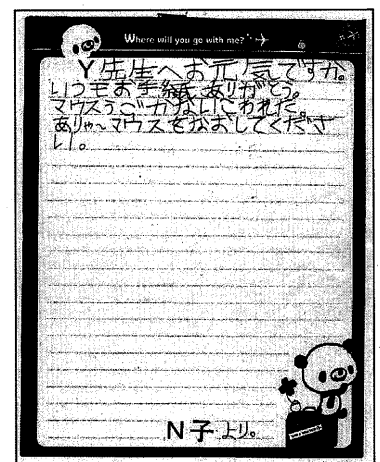 Where will you go with me?
Y先生へお元気ですか。
いつもお手紙ありがとう。
マウスうごかないこわれた
ありゃ〜マウスをなおしてくださ
い。
N子より。